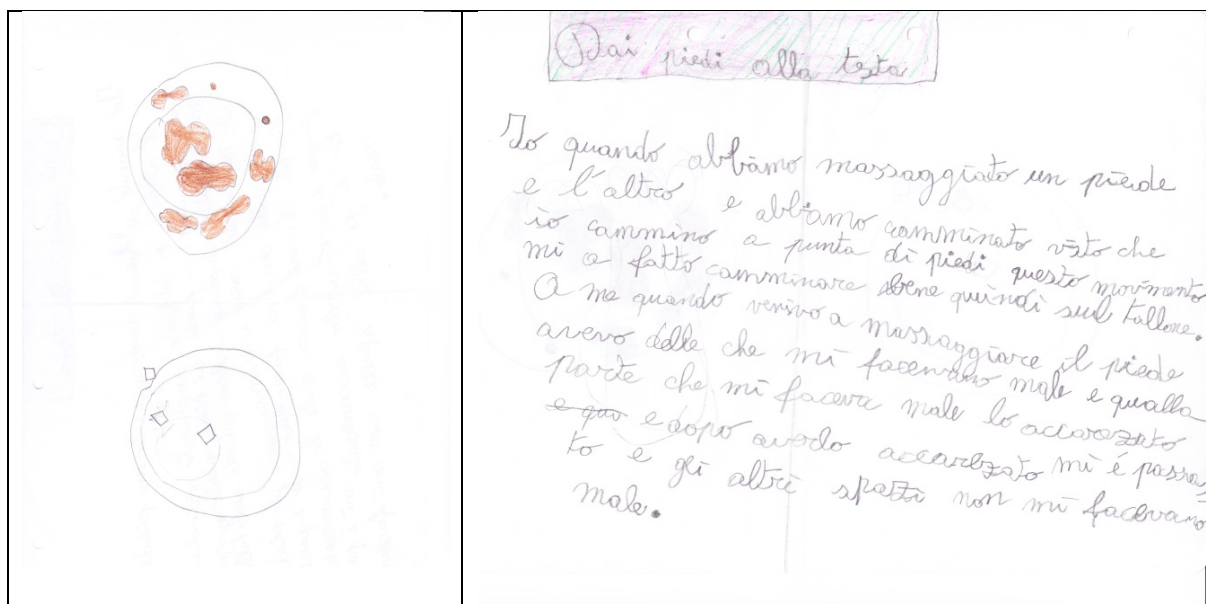 Dai piedi alla testa
Io quando abbiamo massaggiato un piede
e l'altro e abbiamo camminato visto che
io cammino a punta di piedi questo movimento
mi a fatto camminare bene quindi sul tallone.
A me quando venivo a massaggiare il piede
avevo delle che mi facevano male e qualla
parte che mi faceva male lo accarezzato
e qua e dopo averlo accarezzato mi é passa,
to e gli altri spazzi non mi facevano
male.